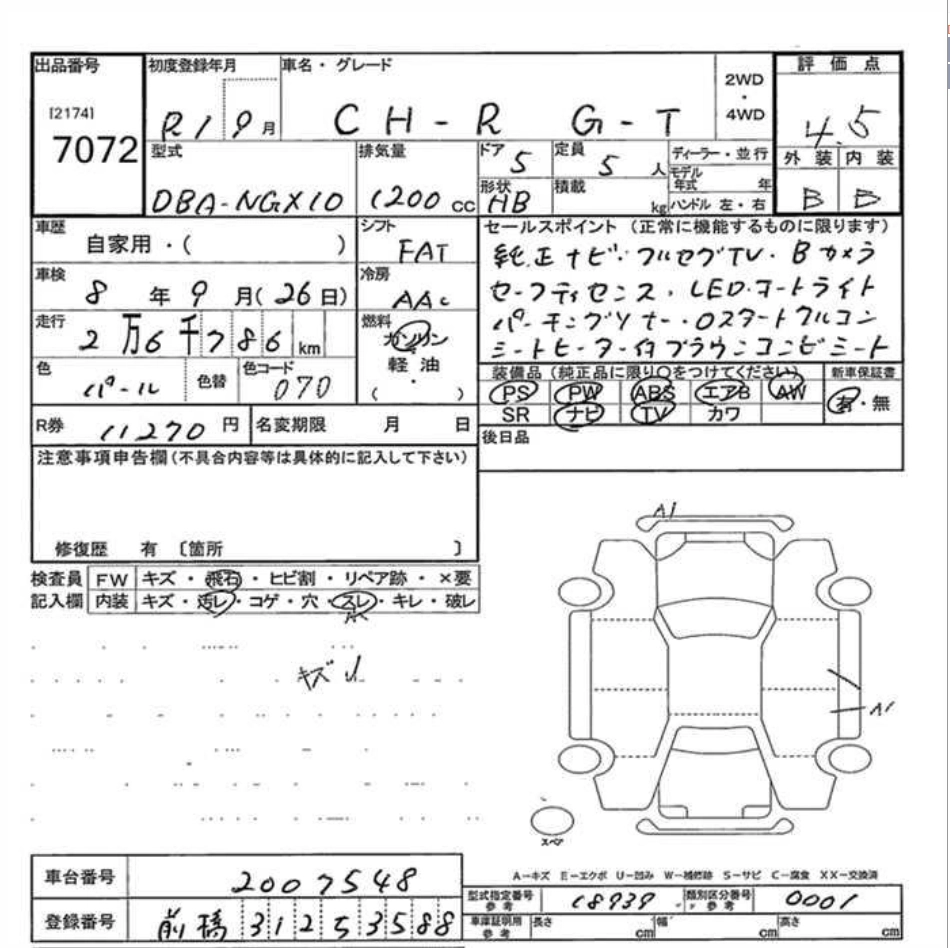 出品番号
初度登録年月
車名・グレード
2WD
・
4WD
評価点
[2174]
7072
R1 9月
CH-R G-T
4.5
型式
DBA-NGX10
排気量
1200 cc
ドア 5
定員 5 人
ディーラー・並行
モデル年式 年
形状 HB
積載 kg
ハンドル 左・右
外装 内装
B B
車歴
自家用・( )
シフト
FAT
セールスポイント (正常に機能するものに限ります)
純正ナビ・フルセグTV・Bカメラ
セーフティセンス・LEDオートライト
パーキングソナー・Oスタートクルコン
シートヒーター付ブラウンコンビシート
車検
8年9月(26日)
冷房
AAC
走行
2万6千786km
燃料
ガソリン
軽油
( ・ )
色
パール
色替
色コード
070
装備品 (純正品に限り○をつけてください)
新車保証書
PS PW ABS エアB AW
有・無
SR ナビ TV カワ
R券 11270 円
名変期限 月 日
後日品
注意事項申告欄(不具合内容等は具体的に記入して下さい)
修復歴 有 〔箇所 〕
検査員
記入欄
FW キズ・飛石・ヒビ割・リペア跡・×要
内装 キズ・汚レ・コゲ・穴・スレ・キレ・破レ
キズ
A1
A1
スペア
A−キズ E−エクボ U−凹み W−補修跡 S−サビ C−腐食 XX−交換済
車台番号
2007548
登録番号
前橋 312 5 3588
型式指定番号
参考
18939
類別区分番号
〃 参考
0001
車庫証明用
参考
長さ cm
幅 cm
高さ cm